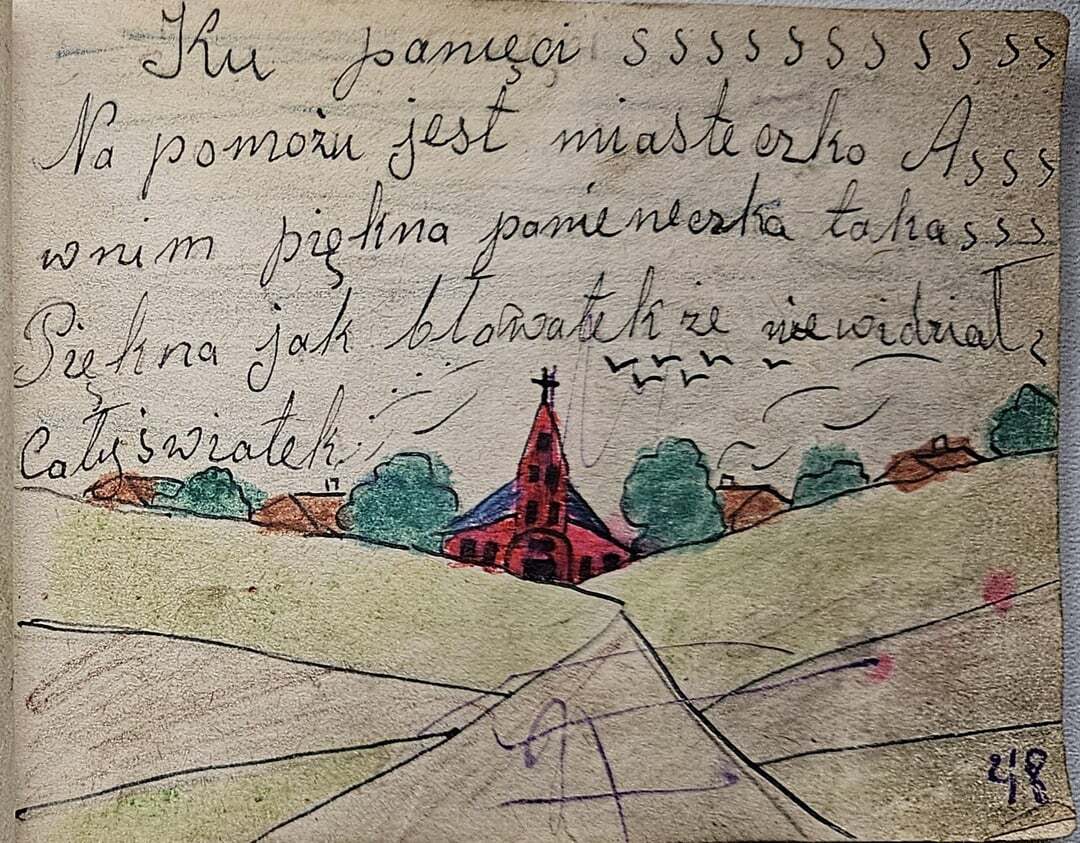 Ku pamięci sssssssssss
Na pomożu jest miasteczko Asss
wnim piękna panieneczka takasss
Piękna jak bławatek że niewidział
całyświatek